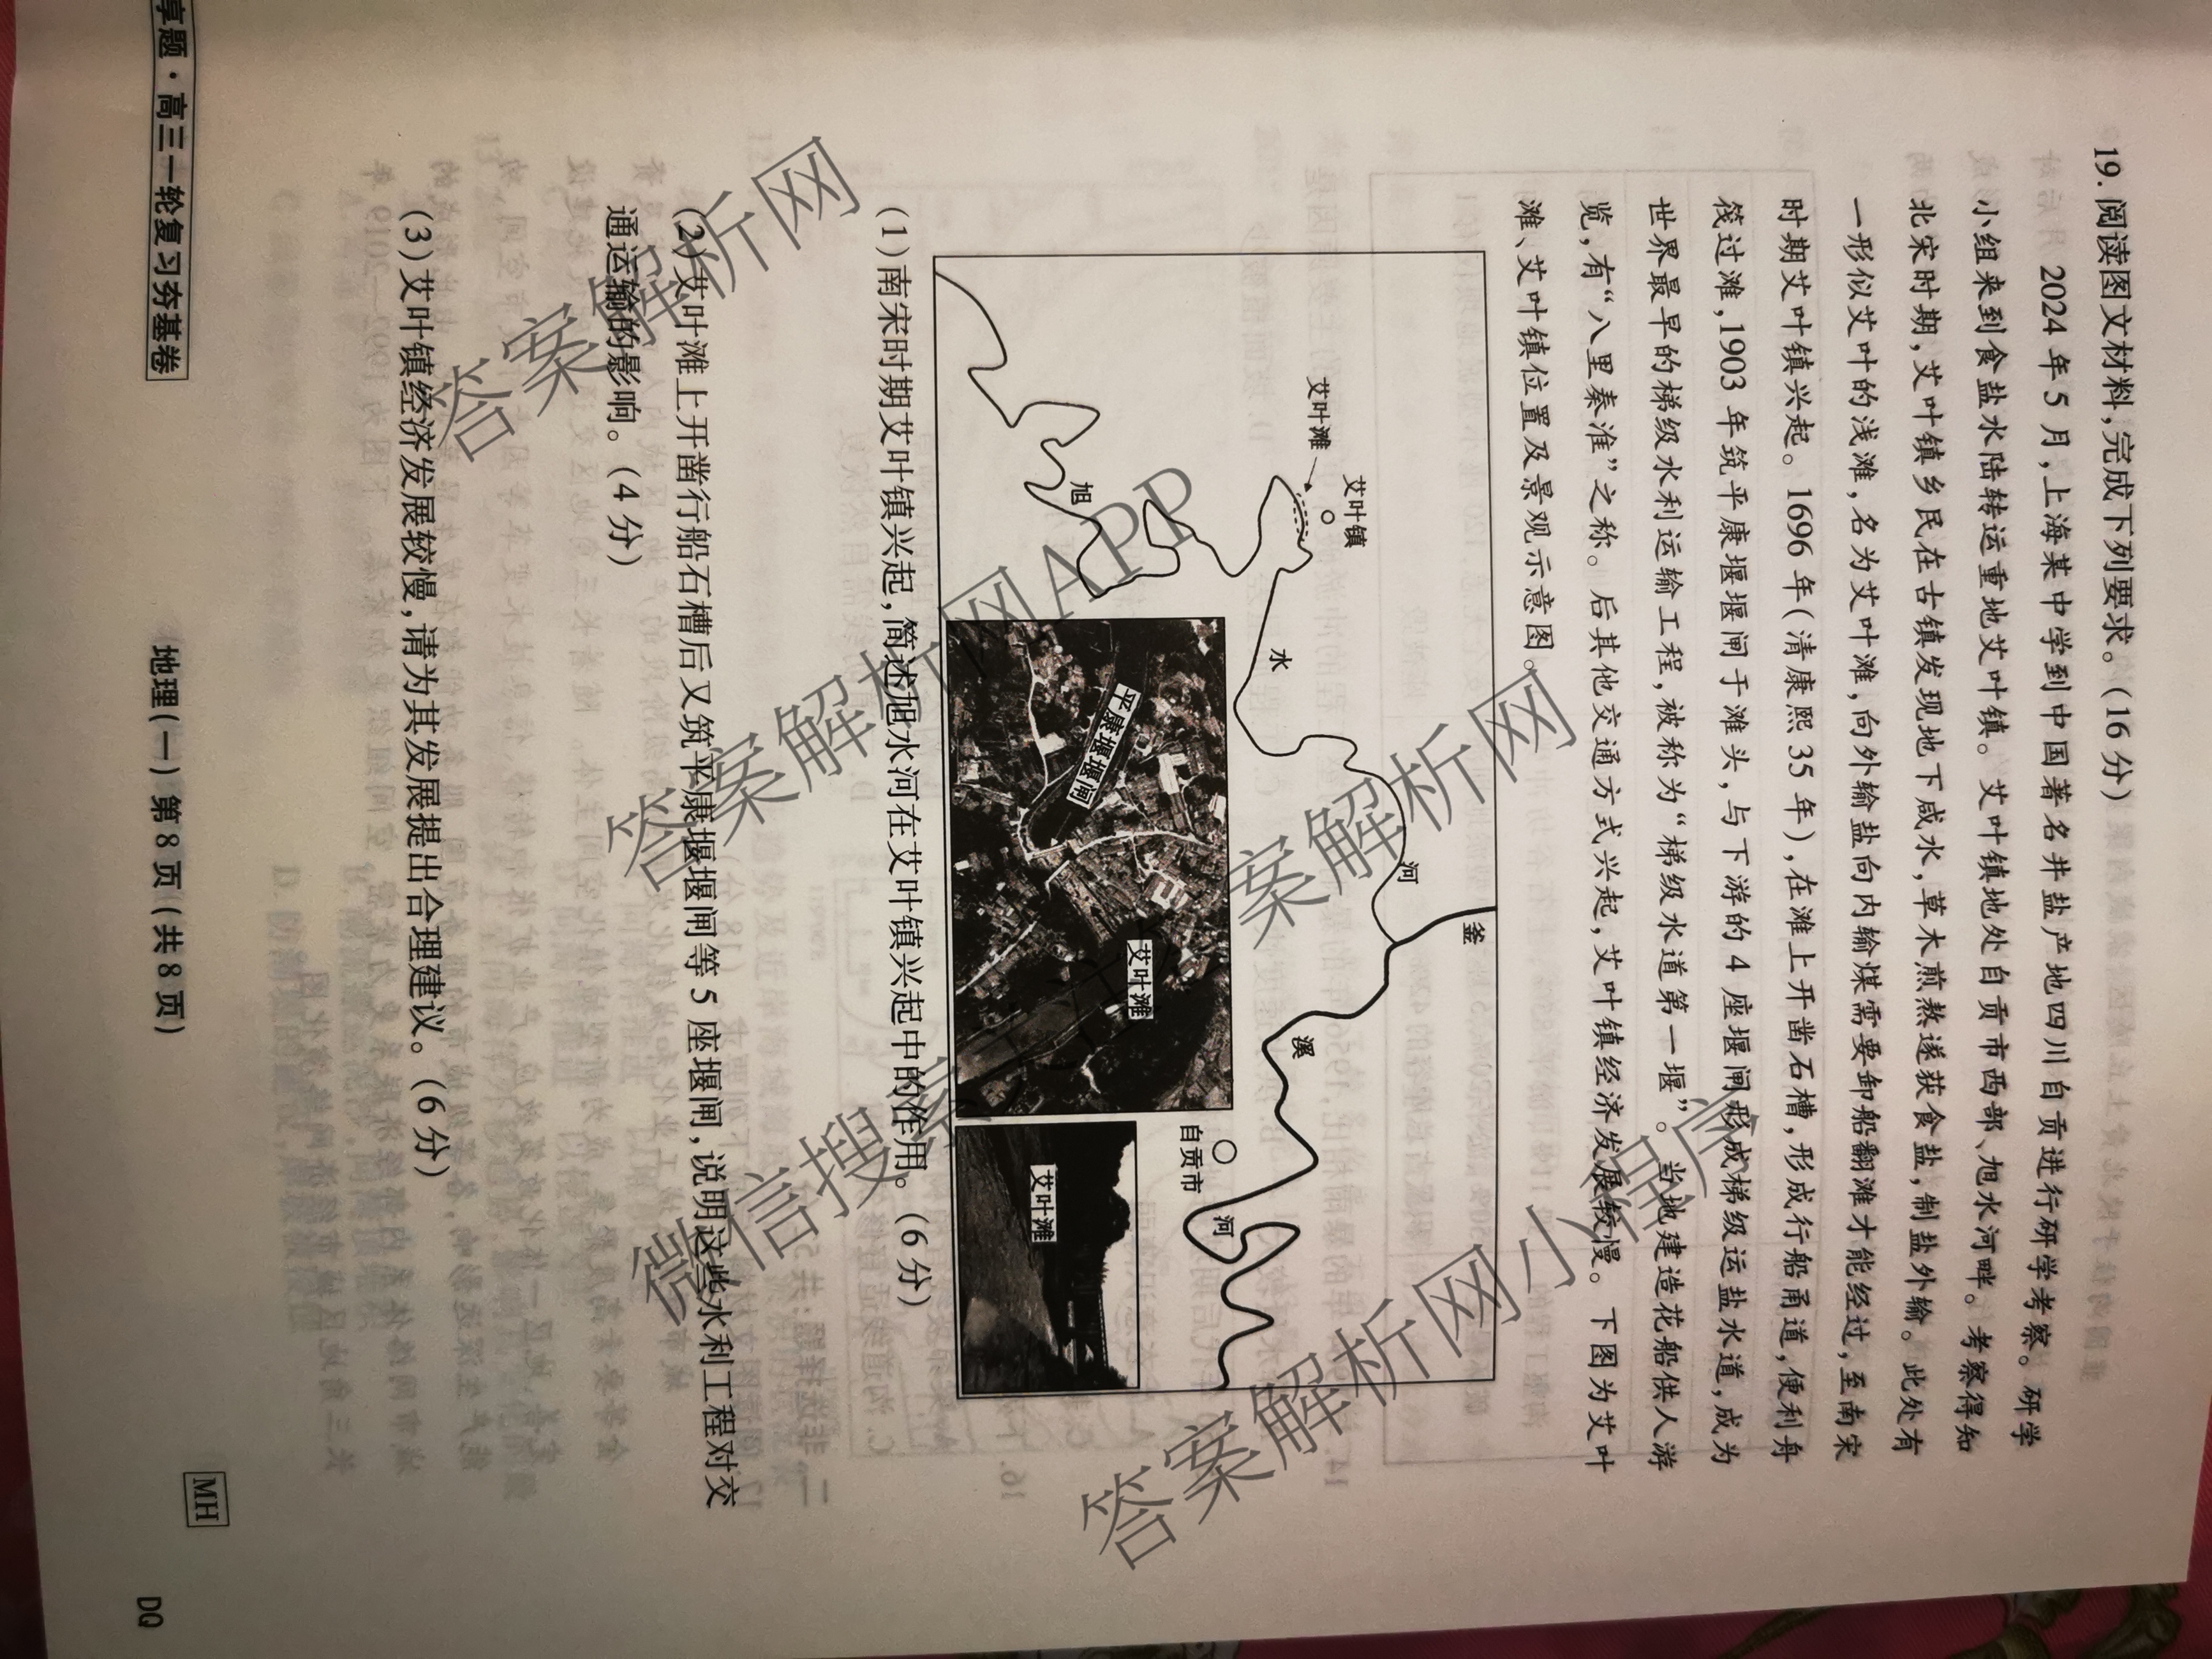 19. 阅读图文材料,完成下列要求。(16 分)
2024 年 5 月,上海某中学到中国著名井盐产地四川自贡进行研学考察。研学
小组来到食盐水陆转运重地艾叶镇。艾叶镇地处自贡市西部、旭水河畔。考察得知
北宋时期,艾叶镇乡民在古镇发现地下咸水,草木煎熬遂获食盐,制盐外输。此处有
一形似艾叶的浅滩,名为艾叶滩,向外输盐向内输煤需要卸船翻滩才能经过,至南宋
时期艾叶镇兴起。1696 年(清康熙 35 年),在滩上开凿石槽,形成行船甬道,便利舟
筏过滩,1903 年筑平康堰堰闸于滩头,与下游的 4 座堰闸形成梯级运盐水道,成为
世界最早的梯级水利运输工程,被称为“梯级水道第一堰”。当地建造花船供人游
览,有“八里秦淮”之称。后其他交通方式兴起,艾叶镇经济发展较慢。下图为艾叶
滩、艾叶镇位置及景观示意图。
艾叶滩
艾叶镇
旭
水
河
釜
溪
河
自贡市
平康堰堰闸
艾叶滩
艾叶滩
(1)南宋时期艾叶镇兴起,简述旭水河在艾叶镇兴起中的作用。(6 分)
(2)艾叶滩上开凿行船石槽后又筑平康堰堰闸等 5 座堰闸,说明这些水利工程对交
通运输的影响。(4 分)
(3)艾叶镇经济发展较慢,请为其发展提出合理建议。(6 分)
享题·高三一轮复习夯基卷
地理(一) 第 8 页(共 8 页)
MH
DQ
答案解析网
答案解析网APP
案解析网
微信搜
答案解析网小程序